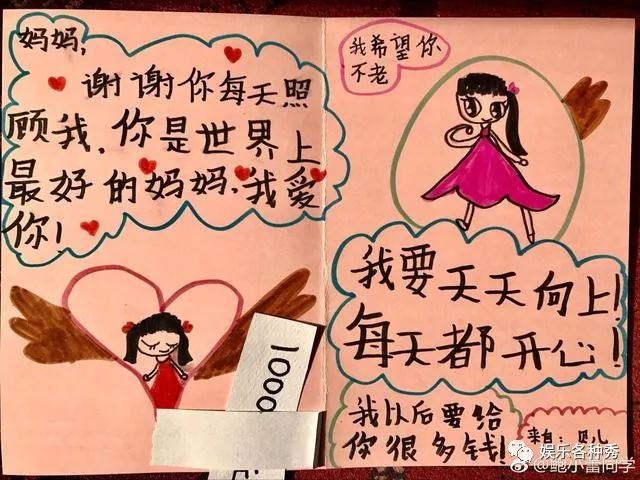 妈妈，
谢谢你每天照
顾我，你是世界上
最好的妈妈，我爱
你！
1000
我希望你
不老
我要天天向上！
每天都开心！
我以后要给
你很多钱！
来自：贝儿
娱乐各种秀
@鲍小蕾同学